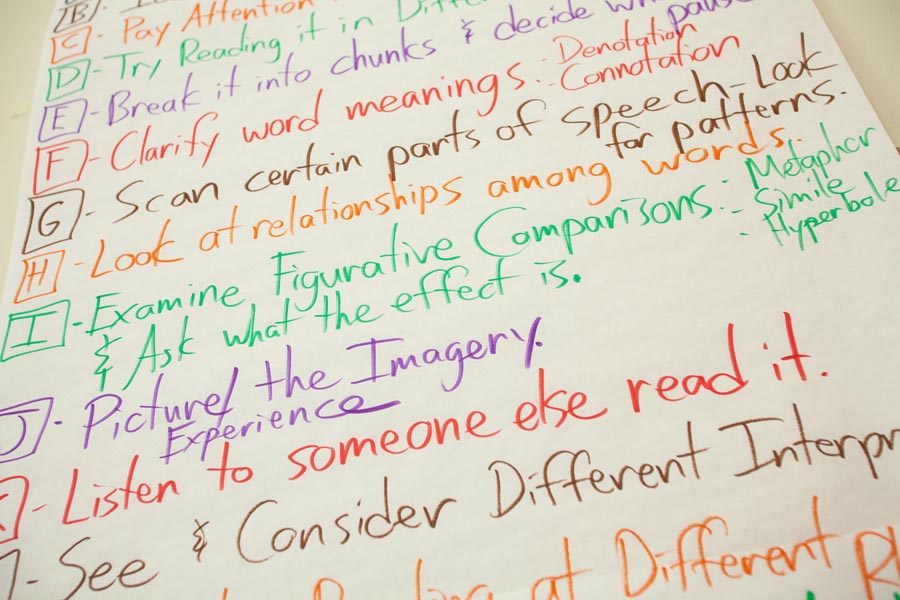 B -
C - Pay Attention
D - Try Reading it in
E - Break it into chunks & decide pause
F - Clarify word meanings. - Denotation
- Connotation
G - Scan certain parts of speech - Look
for patterns.
H - Look at relationships among words.
I - Examine Figurative Comparisons: - Metaphor
- Simile
- Hyperbole
& Ask what the effect is.
J - Picture/ the Imagery.
Experience
- Listen to someone else read it.
- See & Consider Different Interpr
at Different